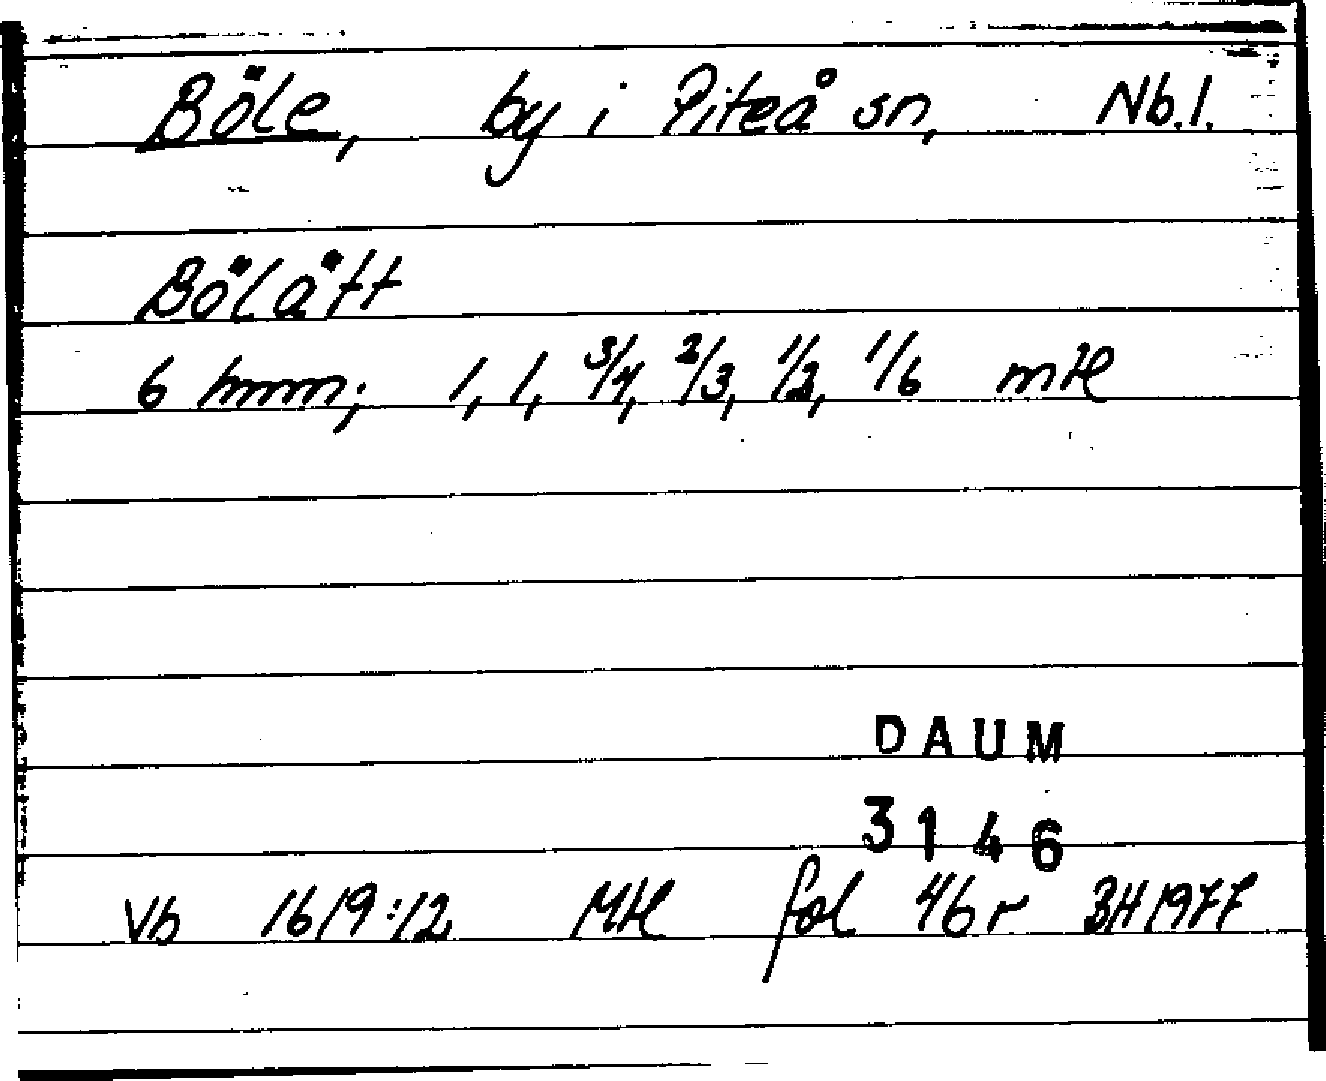 Böle, by i Piteå sn, Nb.l.
Bölätt
6 hmm; 1, 1, 3/4, 2/3, 1/2, 1/6 mtl
DAUM
3146
Vb 1619:12 Mtl fol 46r BH 1977